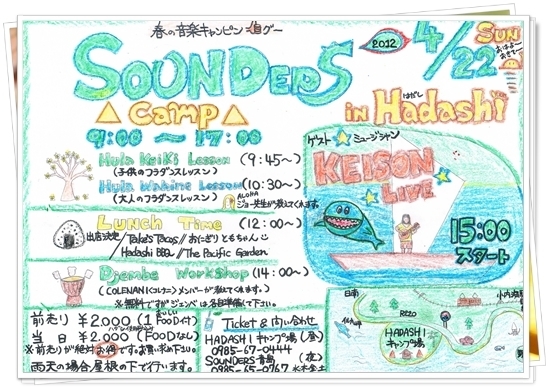 春の音楽キャンピングデー
SOUNDERS
Camp
9:00 〜 17:00
2012
4/22 SUN
おはよー
in Hadashi
はだし
Hula Keiki Lesson (9:45〜)
(子供のフラダンスレッスン)
Hula Wahine Lesson (10:30〜)
(大人のフラダンスレッスン)
ALOHA
Lunch Time (12:00〜)
出店決定/Take's Tacos//おにぎりともちゃん
Hadashi BBQ//The Pacific Garden
Djembe Workshop (14:00〜)
※無料ですが ジェンベは各自準備して下さい。
ゲスト ミュージシャン
KEISON
LIVE
15:00
スタート
前売り ¥2,000 (1Food付)
当日 ¥2,000 (Foodなし)
※前売りが絶対お得です。お買い求め下さい。
雨天の場合屋根の下で行います。
Ticket & 問い合わせ
HADASHIキャンプ場(昼)
0985-67-0444
SOUNDERS青島 (夜)
0985-65-0767
日南
HADASHI
キャンプ場